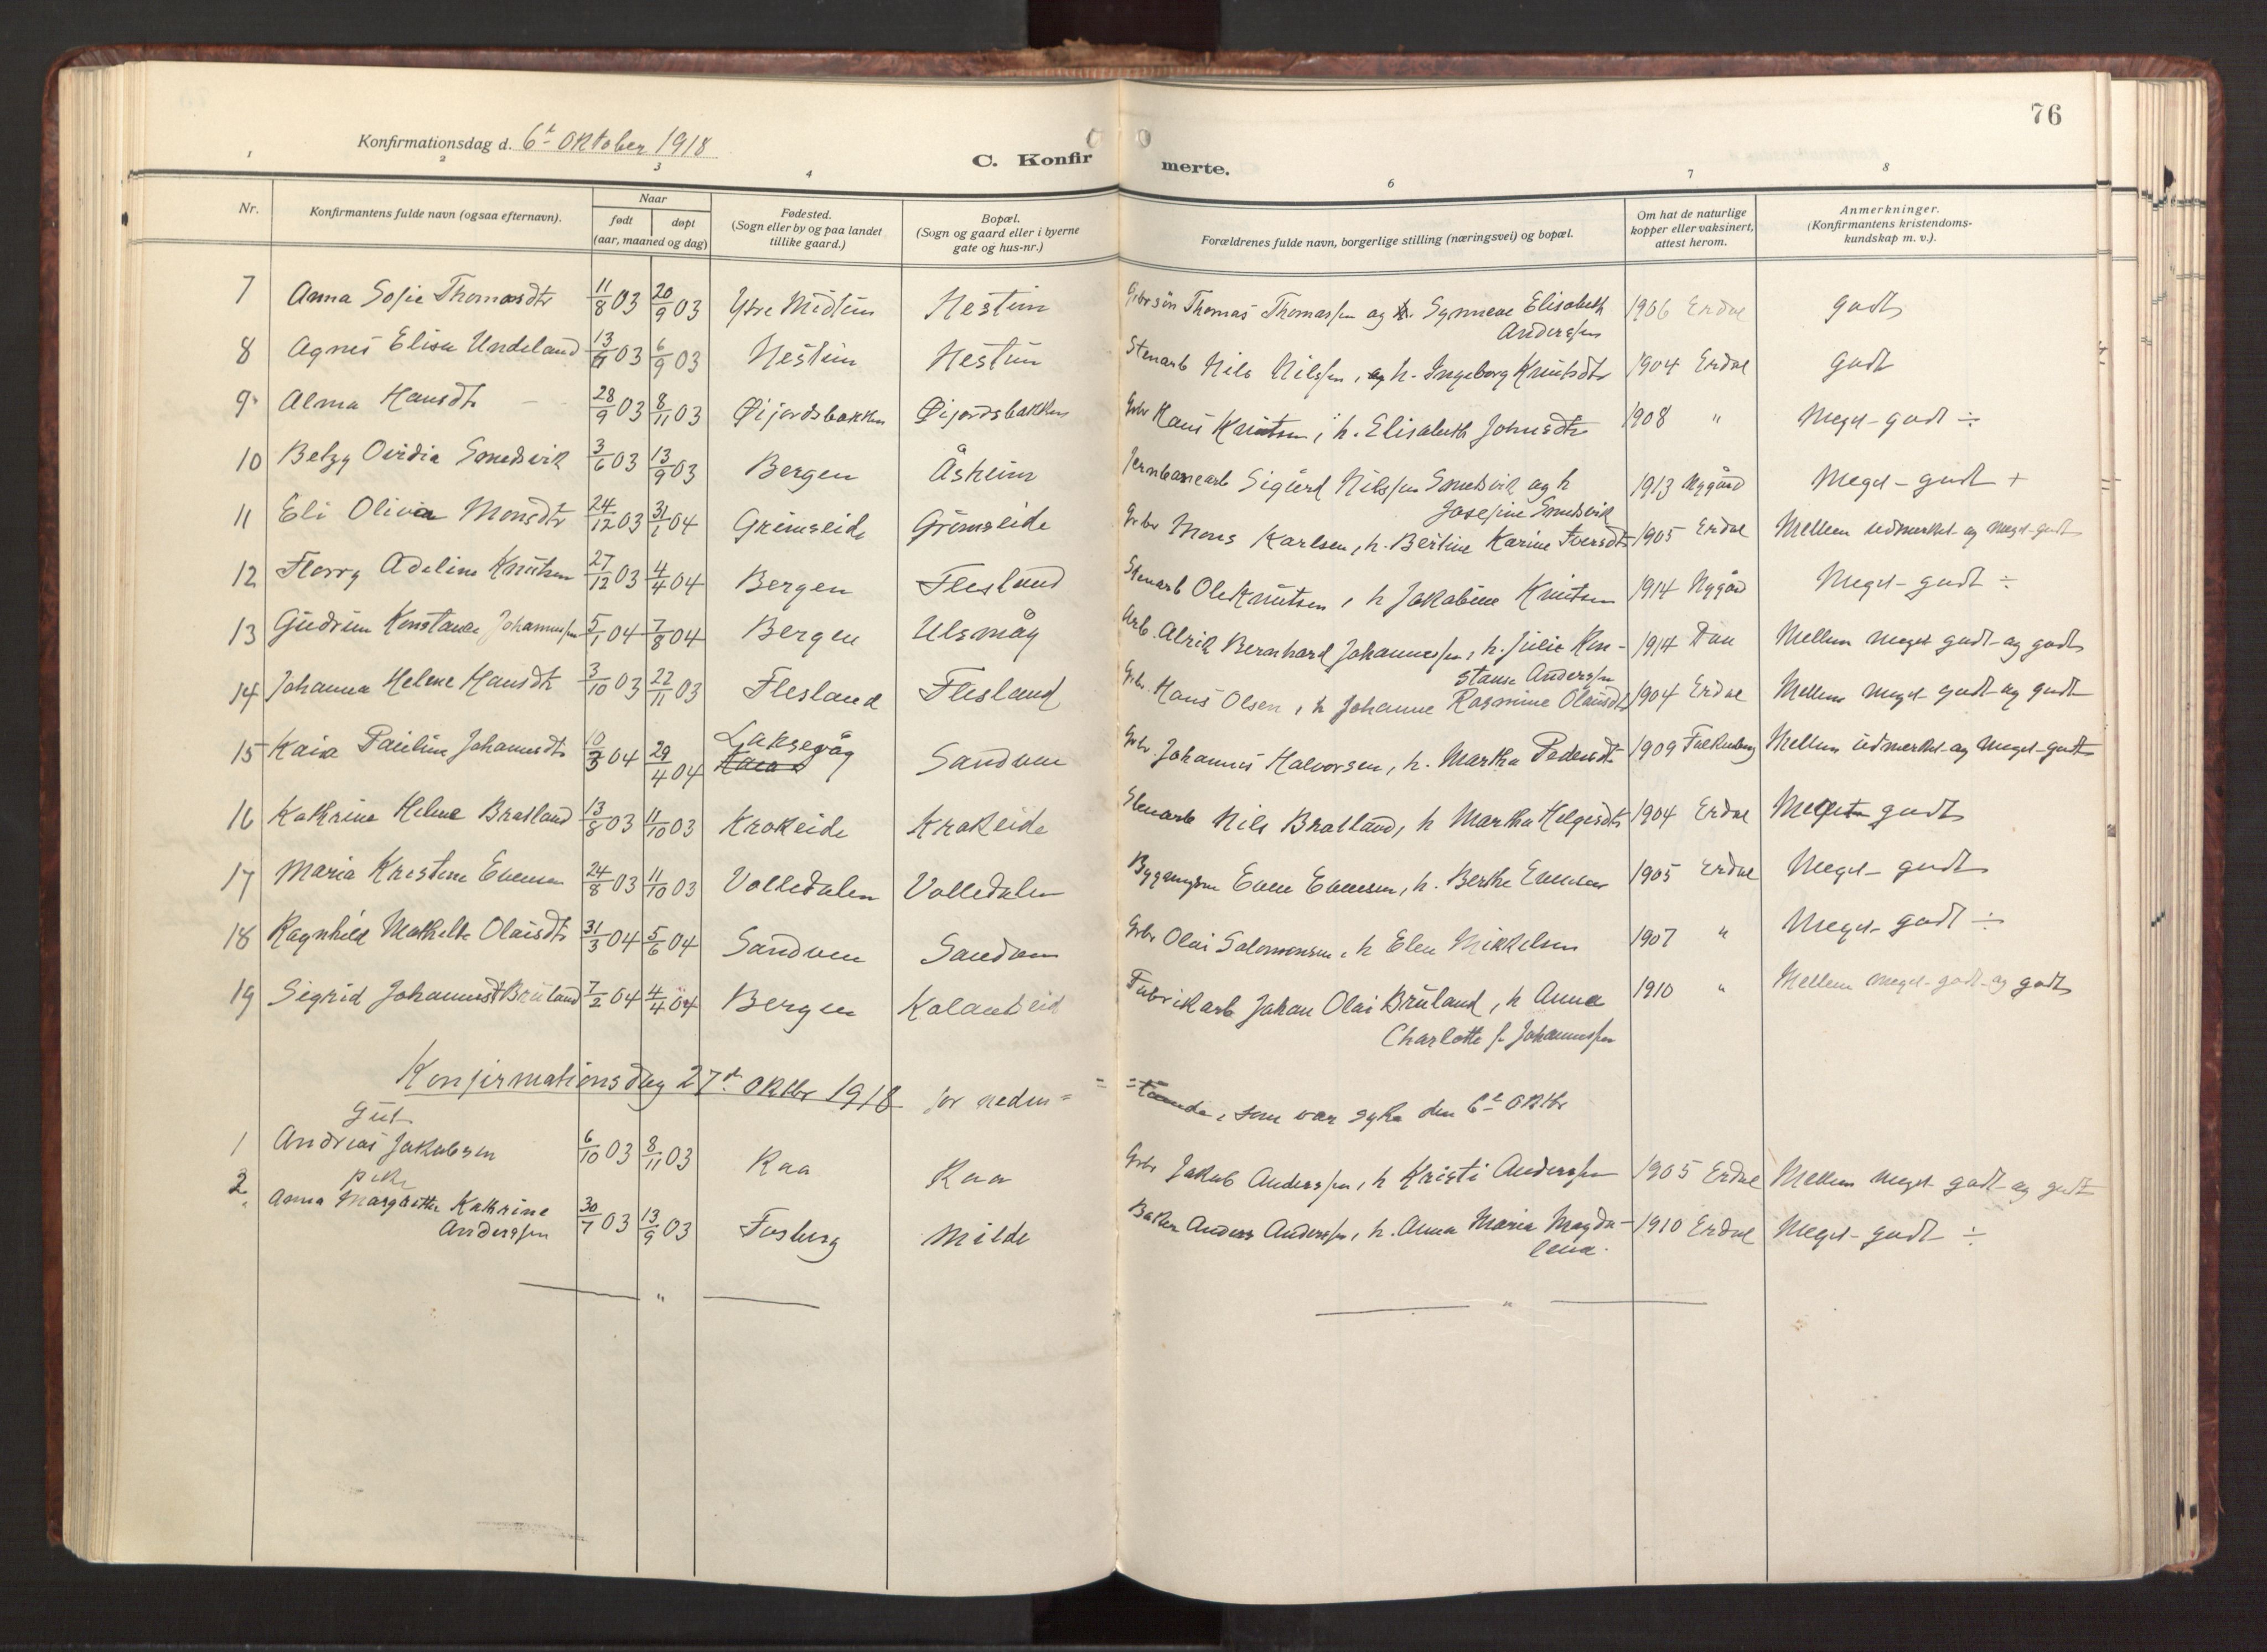 76
Konfirmationsdag d. 6t Oktober 1918
C. Konfirmerte.
1 2 3 4 6 7 8
Nr. Konfirmantens fulde navn (ogsaa efternavn). Naar født døpt (aar, maaned og dag) Fødested. (Sogn eller by og paa landet tillike gaard.) Bopæl. (Sogn og gaard eller i byerne gate og hus-nr.) Forældrenes fulde navn, borgerlige stilling (næringsvei) og bopæl. Om hat de naturlige kopper eller vaksinert, attest herom. Anmerkninger. (Konfirmantens kristendomskundskap m. v.).
7 Anna Sofie Thomasdtr 11/8 03 20/9 03 Ytre Midtun Nestun Grbrsøn Thomas Thomassen og h. Synneve Elisabeth Anderssen 1906 Erdal godt
8 Agnes Elisa Undeland 13/ 03 6/9 03 Nestun Nestun Stenarb Nils Nilssen, og h. Ingeborg Knutsdtr 1904 Erdal godt
9 Alma Hansdtr 28/9 03 8/11 03 Øijordsbakken Øijordsbakken Grbr Hans Knutsen, h. Elisabeth Johnsdtr 1908 " Meget godt ÷
10 Betzy Ovidia Smedsvik 3/6 03 13/9 03 Bergen Åsheim Jernbanearb Sigurd Nilssen Smedsvik og h Josefine Smedsvik 1913 Nygård Meget godt +
11 Eli Olivia Monsdtr 24/12 03 31/1 04 Grimseide Grimseide Grbr Mons Karlsen, h. Bertine Karine Iversdtr 1905 Erdal Mellem udmerket og meget godt
12 Florry Adeline Knutsen 27/12 03 4/4 04 Bergen Flesland Stenarb Ole Knutsen, h Jakobine Knutsen 1914 Nygård Meget godt ÷
13 Gudrun Konstanse Johannessen 5/1 04 7/8 04 Bergen Ulsmåg Arb. Alrik Bernhard Johannessen, h. Julie Konstanse Anderssen 1914 Mellem meget godt og godt
14 Johanna Helene Hansdtr 3/10 03 22/11 03 Flesland Flesland Grbr. Hans Olsen, h Johanne Rasmine Olausdtr 1904 Erdal Mellem meget godt og godt
15 Kaia Pauline Johannesdtr 10/3 04 29/4 04 Laksevåg Sandven Grbr. Johannes Halvorsen, h. Martha Pedersdtr 1909 Falkenberg Mellem udmerket og meget godt
16 Kathrine Helene Bratland 13/8 03 11/10 03 Krokeide Krokeide Stenarb Nils Bratland, h Martha Helgesdtr 1904 Erdal Meget godt
17 Maria Kristine Evensen 24/8 03 11/10 03 Volledalen Volledalen Bygningsm Even Evensen, h. Berthe Evensen 1905 Erdal Meget godt
18 Ragnhild Mathilde Olaisdtr 31/3 04 5/6 04 Sandven Sandven Grbr Olai Salomonsen, h Elen Mikkelsen 1907 " Meget godt ÷
19 Sigrid Johannesdt Bruland 7/2 04 4/4 04 Bergen Kalandseid Fabrikarb Johan Olai Bruland, h Anna Charlotte f. Johannessen 1910 " Mellem meget godt og godt
Konfirmationsdag 27d Oktbr 1918 for neden=
=stående, som var syke den 6t Oktbr
Gut
1 Andreas Jakobsen 6/10 03 8/11 03 Raa Raa Grbr Jakob Anderssen, h Kristi Anderssen 1905 Erdal Mellem meget godt og godt
pike
2. Anna Margrethe Kathrine Anderssen 30/7 03 13/9 03 Fosberg Milde Baker Anders Anderssen, h. Anna Maria Magdalena. 1910 Erdal Meget godt ÷